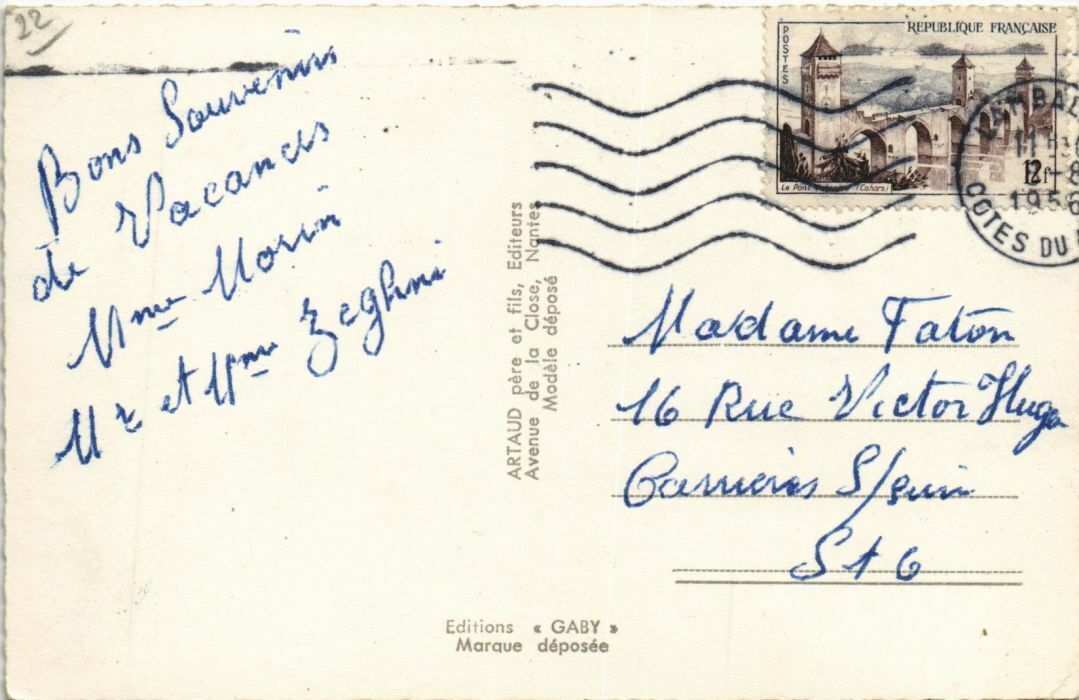 22
Bons Souvenirs
de Vacances
Mme Morin
Mr et Mme Zeghni
ARTAUD père et fils, Editeurs
Avenue de la Close, Nantes
Modèle déposé
POSTES
REPUBLIQUE FRANÇAISE
Le Pont Valentré (Cahors)
12f
11 H
1956
COTES DU
Madame Faton
16 Rue Victor Hugo
Carrières S/Seine
S & O
Editions « GABY »
Marque déposée